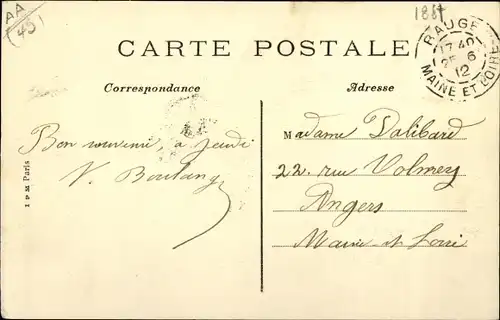 AA
(49)
1887
CARTE POSTALE
BAUGÉ
17 40
25 6
12
MAINE ET LOIRE
Correspondance
Adresse
Bon souvenir, à jeudi
V. Boulang
Madame Dalibard
22, rue Volney
Angers
Maine et Loire
Paris